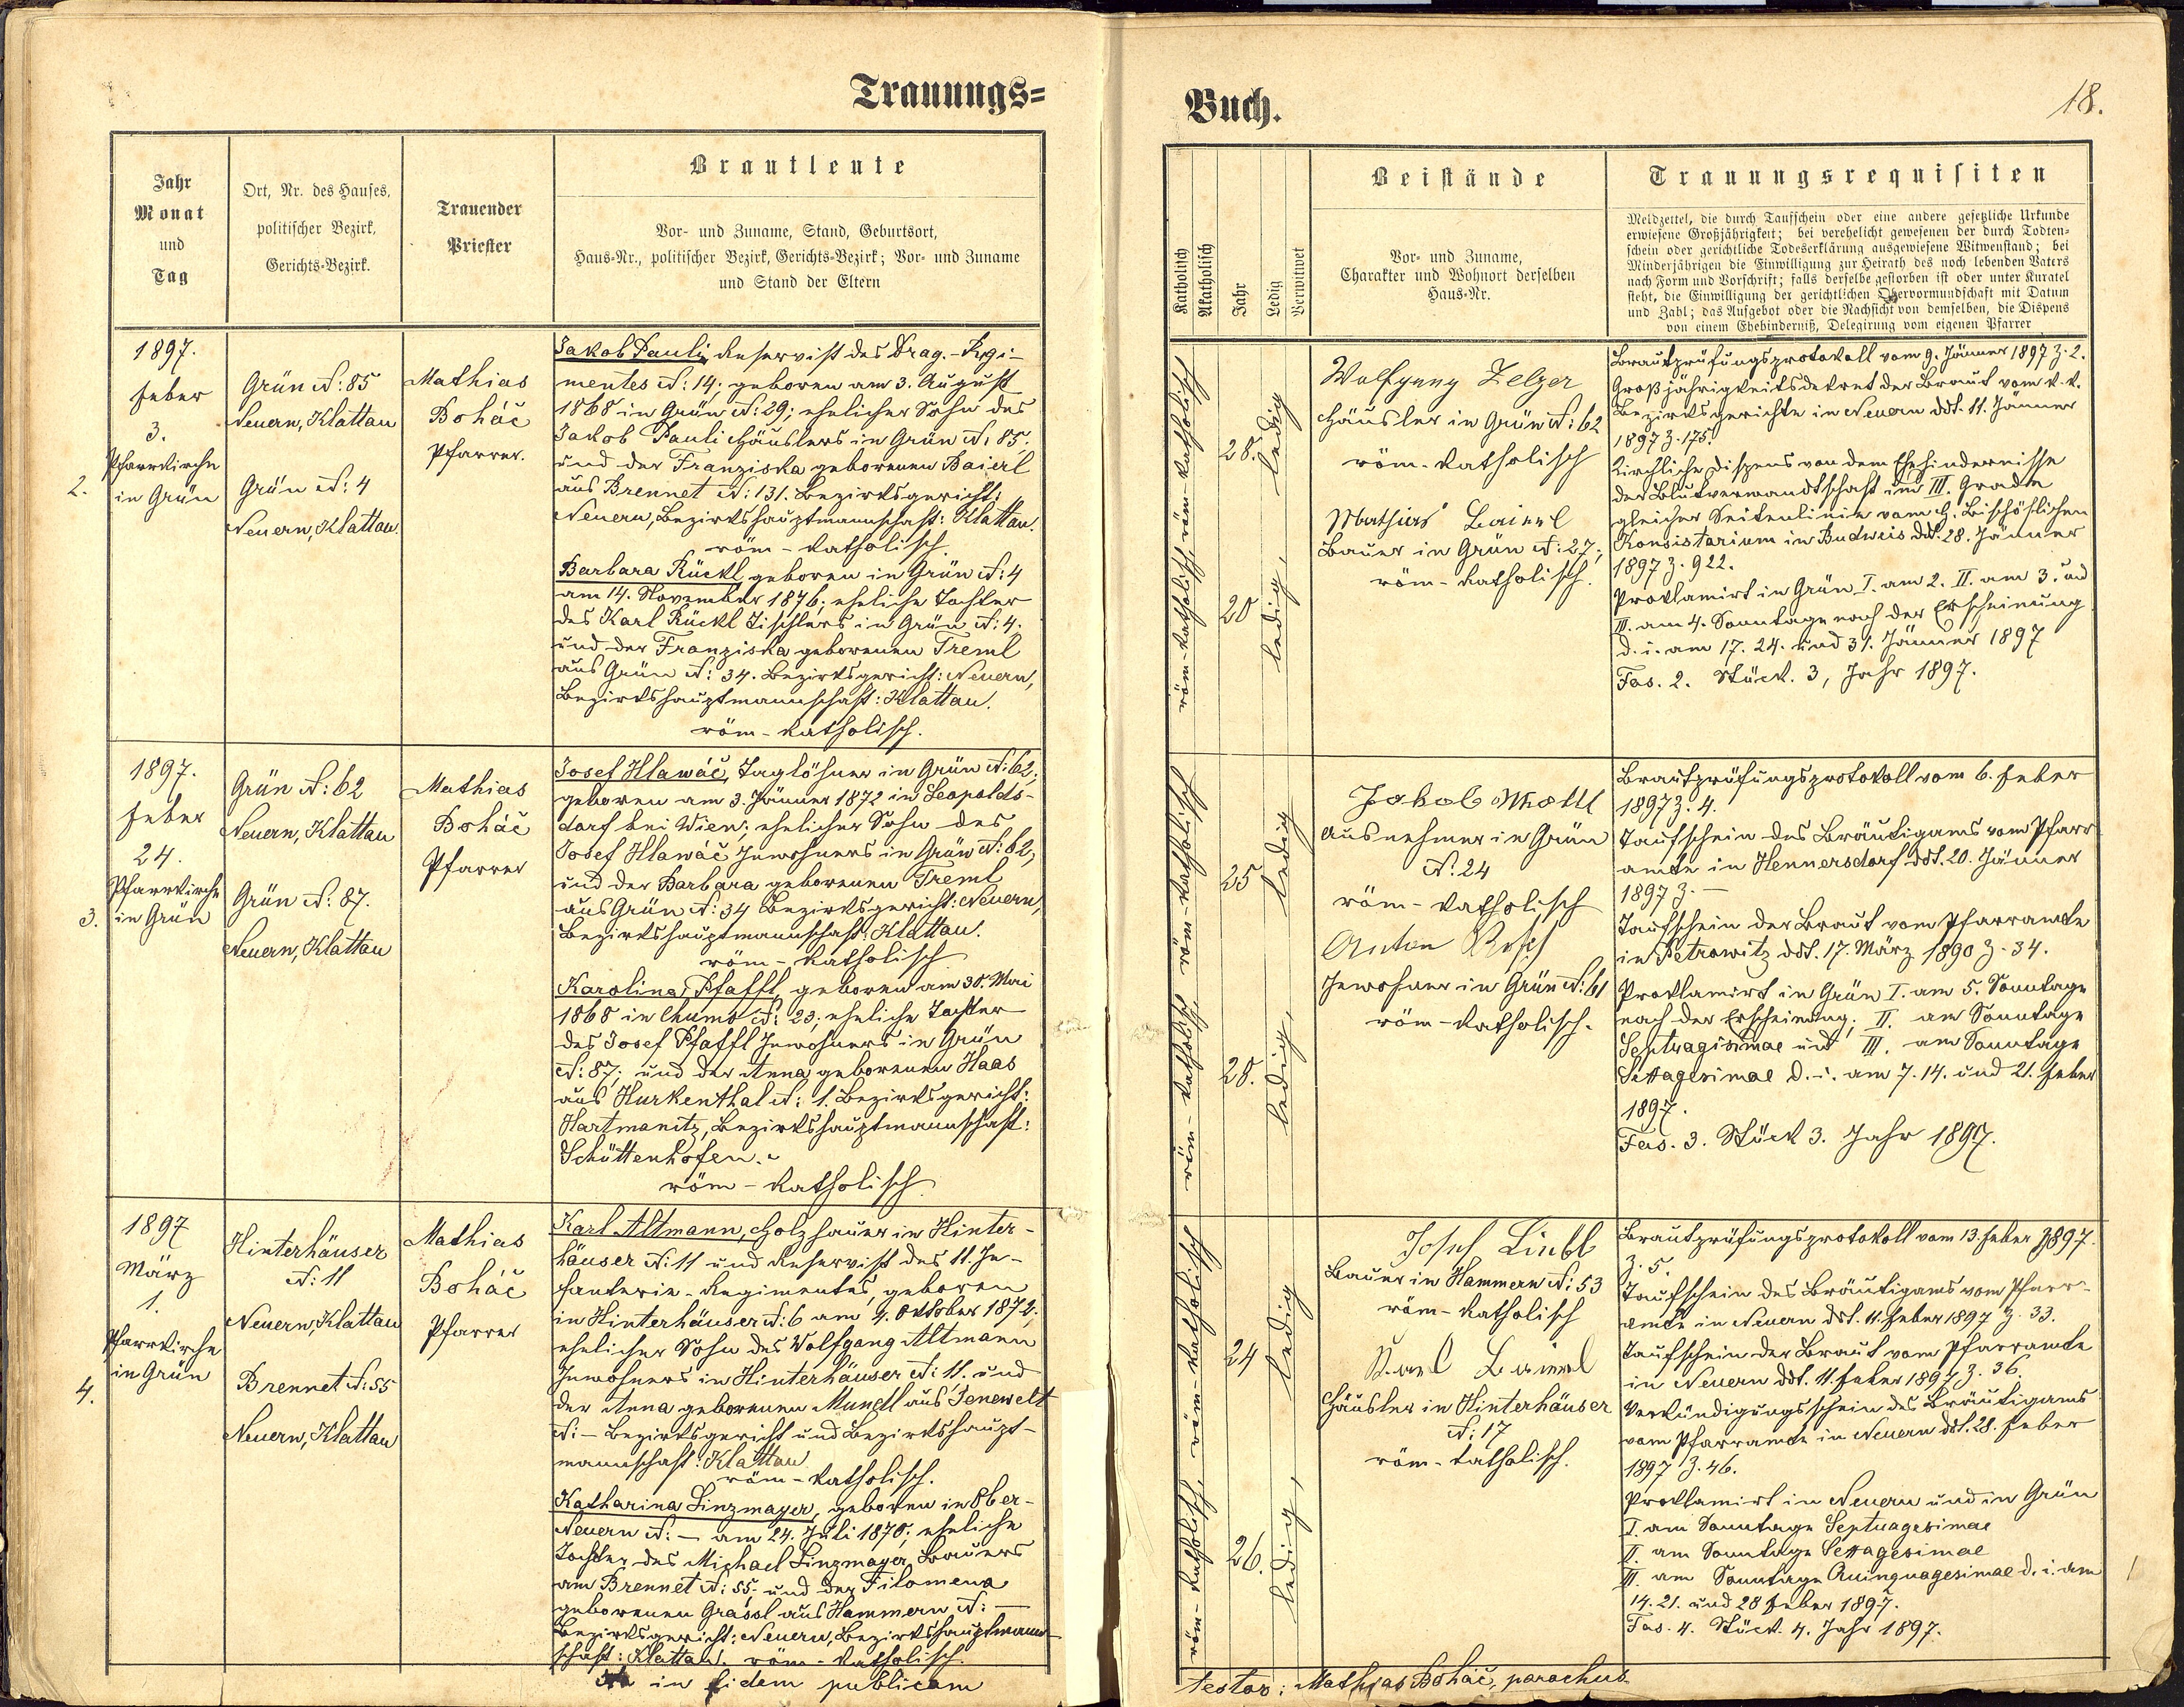 Trauungs=
Jahr
Monat
und
Tag
Ort, Nr. des Hauses,
politischer Bezirk,
Gerichts-Bezirk.
Trauender
Priester
Brautleute
Vor- und Zuname, Stand, Geburtsort,
Haus-Nr., politischer Bezirk, Gerichts-Bezirk; Vor- und Zuname
und Stand der Eltern
2.
1897.
Feber
3.
Pfarrkirche
in Grün
Grün N: 85
Neuern, Klattau
Grün N: 4
Neuern, Klattau.
Mathias
Boháč
Pfarrer.
Jakob Pauli, Reservist des Drag.-Regi-
mentes N: 14; geboren am 3. August
1868 in Grün N: 29; ehelicher Sohn des
Jakob Pauli Häuslers in Grün N: 85;
und der Franziska geborenen Baierl
aus Brennet N: 131. Bezirksgericht:
Neuern, Bezirkshauptmannschaft: Klattau.
röm-katholisch.
Barbara Rückl, geboren in Grün N: 4
am 14. November 1876; eheliche Tochter
des Karl Rückl Tischlers in Grün N: 4.
und der Franziska geborenen Treml
aus Grün N: 34. Bezirksgericht: Neuern,
Bezirkshauptmannschaft: Klattau.
röm-katholisch.
3.
1897.
Feber
24.
Pfarrkirche
in Grün
Grün N: 62
Neuern, Klattau
Grün N: 87.
Neuern, Klattau
Mathias
Boháč
Pfarrer
Josef Hlawáč, Taglöhner in Grün N: 62;
geboren am 3. Jänner 1872 in Leopolds-
dorf bei Wien; ehelicher Sohn des
Josef Hlawáč Inwohners in Grün N: 62;
und der Barbara geborenen Treml
aus Grün N: 34 Bezirksgericht: Neuern,
Bezirkshauptmannschaft: Klattau.
röm-katholisch
Karolina Pfaffl, geboren am 30. Mai
1868 in Chumo N: 23; eheliche Tochter
des Josef Pfaffl Inwohners in Grün
N: 87; und der Anna geborenen Haas
aus Hurkenthal N: 1. Bezirksgericht:
Hartmanitz, Bezirkshauptmannschaft:
Schüttenhofen.
röm-katholisch
4.
1897
März
1.
Pfarrkirche
in Grün
Hinterhäuser
N: 11
Neuern, Klattau
Brennet N: 55
Neuern, Klattau
Mathias
Boháč
Pfarrer
Karl Altmann, Holzhauer in Hinter-
häuser N: 11 und Reservist des 11. In-
fanterie-Regimentes, geboren
in Hinterhäuser N: 6 am 4. Oktober 1872;
ehelicher Sohn des Wolfgang Altmann
Inwohners in Hinterhäuser N: 11. und
der Anna geborenen Mundl aus Jenewelt
N: - Bezirksgericht und Bezirkshaupt-
mannschaft: Klattau.
röm-katholisch.
Katharina Linzmayer, geboren in Ober-
Neuern N: - am 24. Juli 1870; eheliche
Tochter des Michael Linzmayer, Bauers
am Brennet N: 55; und der Filomena
geborenen Grassl aus Hammern N: -
Bezirksgericht: Neuern, Bezirkshauptmann-
schaft: Klattau. röm-katholisch.
in fidem publicam
Buch.
18.
Katholisch
Akatholisch
Jahr
Ledig
Verwitwet
Beistände
Vor- und Zuname,
Charakter und Wohnort derselben
Haus-Nr.
Trauungsrequisiten
Meldzettel, die durch Taufschein oder eine andere gesetzliche Urkunde
erwiesene Großjährigkeit; bei verehelicht gewesenen der durch Todten-
schein oder gerichtliche Todeserklärung ausgewiesene Witwenstand; bei
Minderjährigen die Einwilligung zur Heirath des noch lebenden Vaters
nach Form und Vorschrift; falls derselbe gestorben ist oder unter Kuratel
steht, die Einwilligung der gerichtlichen Obervormundschaft mit Datum
und Zahl; das Aufgebot oder die Nachsicht von demselben, die Dispens
von einem Ehehinderniß, Delegirung vom eigenen Pfarrer
röm-katholisch, röm-katholisch
28.
20
ledig, ledig
Wolfgang Zelzer
Häusler in Grün N: 62
röm-katholisch
Mathias Baierl
Bauer in Grün N: 27;
röm-katholisch.
Brautprüfungsprotokoll vom 9. Jänner 1897 Z. 2.
Großjährigkeitsdekret der Braut vom k. k.
Bezirksgerichte in Neuern ddt. 11. Jänner
1897 Z. 175.
Kirchliche Dispens von dem Ehehindernisse
der Blutverwandtschaft im III. Grade
gleicher Seitenlinie vom h. Bischöflichen
Konsistorium in Budweis ddt. 28. Jänner
1897 Z. 922.
Proklamirt in Grün I. am 2. II. am 3. und
III. am 4. Sonntage nach der Erscheinung
d. i. am 17. 24. und 31. Jänner 1897
Fas. 2. Stück. 3, Jahr 1897.
röm-katholisch, röm-katholisch
25
28.
ledig, ledig
Jakob
Ausnehmer in Grün
N: 24
röm-katholisch
Anton
Inwohner in Grün N: 61
röm-katholisch.
Brautprüfungsprotokoll vom 6. Feber
1897 Z. 4.
Taufschein des Bräutigams vom Pfarr-
amte in Hennersdorf ddt. 20. Jänner
1897 Z. -
Taufschein der Braut vom Pfarramte
in Petrowitz ddt. 17. März 1890 Z. 34.
Proklamirt in Grün I. am 5. Sonntage
nach der Erscheinung; II. am Sonntage
Septuagesimae und III. am Sonntage
Sexagesimae d. i. am 7. 14. und 21. Feber
1897.
Fas. 3. Stück 3. Jahr 1897.
röm-katholisch, röm-katholisch
24
26.
ledig, ledig
Josef
Bauer in Hammern N: 53
röm-katholisch
Karl Baierl
Häusler in Hinterhäuser
N: 17
röm-katholisch.
Brautprüfungsprotokoll vom 13. Feber 1897.
Z. 5.
Taufschein des Bräutigams vom Pfarr-
amte in Neuern ddt. 11. Feber 1897 Z. 33.
Taufschein der Braut vom Pfarramte
in Neuern ddt. 11. Feber 1897 Z. 36.
Verkündigungsschein des Bräutigams
vom Pfarramte in Neuern ddt. 28. Feber
1897 Z. 46.
Proklamirt in Neuern und in Grün
I. am Sonntage Septuagesimae
II. am Sonntage Sexagesimae
III. am Sonntage Quinquagesimae d. i. am
14. 21. und 28 Feber 1897.
Fas. 4. Stück. 4. Jahr 1897.
testor: Mathias Boháč, parochus